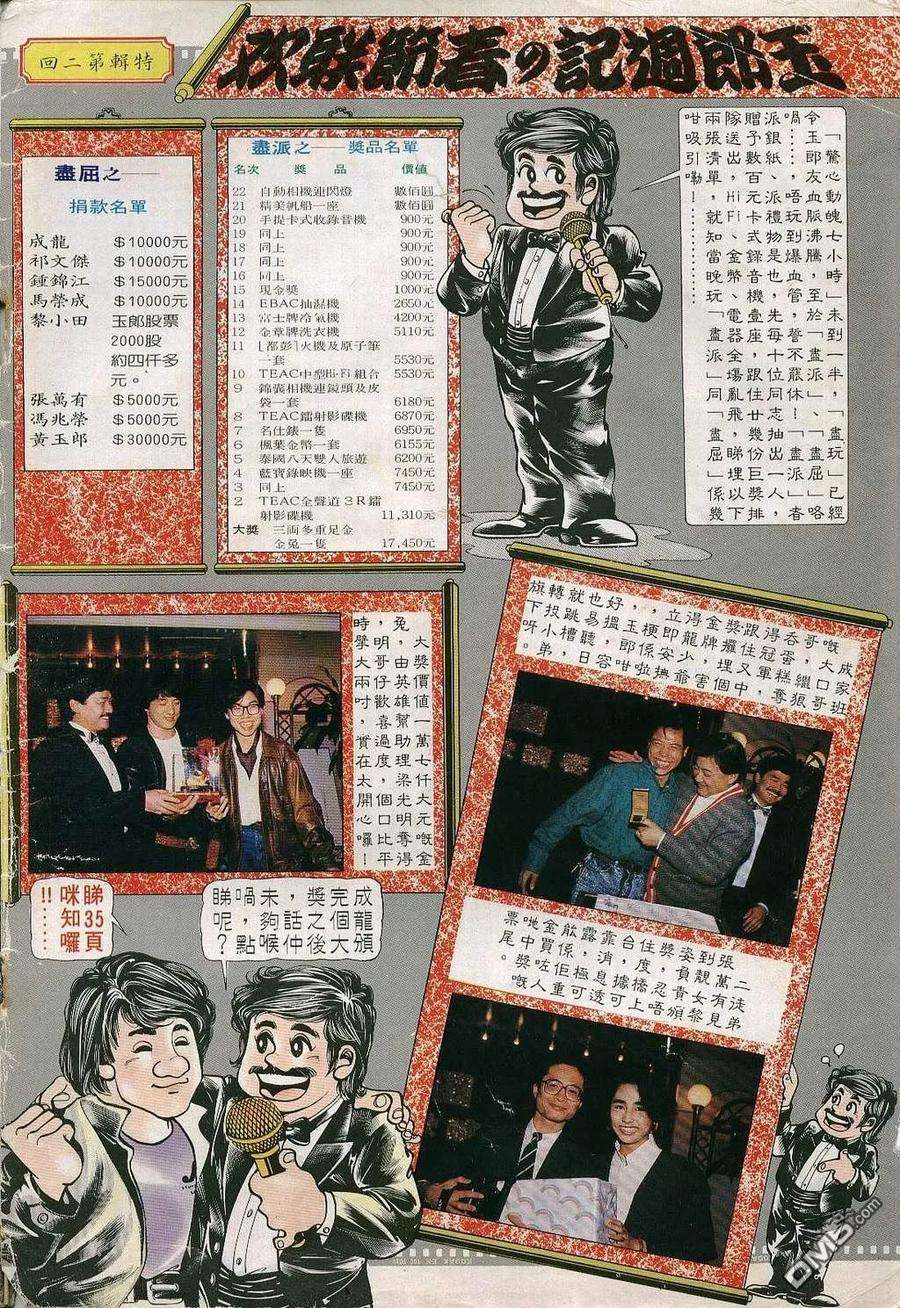 玉郎週記の春節聯歡
特輯第二回
盡屈之——
捐款名單
成龍 $10000元
祁文傑 $10000元
鍾錦江 $15000元
馬榮成 $10000元
黎小田 玉郎股票
2000股
約四仟多
元。
張萬有 $5000元
馮兆榮 $5000元
黃玉郎 $30000元
盡派之——獎品名單
名次 獎品 價値
22 自動相機連閃燈 數佰圓
21 精美帆船一座 數佰圓
20 手提卡式收錄音機 900元
19 同上 900元
18 同上 900元
17 同上 900元
16 同上 900元
15 現金獎 1000元
14 EBAC抽濕機 2650元
13 富士牌冷氣機 4200元
12 金章牌洗衣機 5110元
11 「都彭」火機及原子筆
一套 5530元
10 TEAC中型Hi-Fi組合 5530元
9 錦囊相機連鏡頭及皮
袋一套 6180元
8 TEAC鐳射影碟機 6870元
7 名仕錶一隻 6950元
6 楓葉金幣一套 6155元
5 泰國八天雙人旅遊 6200元
4 藍寶錄映機一座 7450元
3 同上 7450元
2 TEAC全聲道3R鐳
射影碟機 11,310元
大獎 三両多重足金
金兔一隻 17,450元
「驚心動魄七小時」未到一半，「盡玩」已經
令玉郎友血脈沸騰，至於「盡派」、「盡屈」略
喎……唔玩到爆血管，誓不罷休！「盡派」者
派銀紙、派禮物是也，先每十位同志抽出一人，
贈予數百元卡式錄音機壹座，跟住廿幾份巨獎排
隊送出，Hi Fi、金幣、電器全場亂飛，睇埋以下
兩張清單，就知當晚玩「盡派」同「盡屈」係幾
咁吸引嘞！…………
大獎價値一萬七仟大元嘅金
兔，由英雄幫助理梁光明奪得
，明哥仔歡喜過度，個口比平
時擘大兩吋，實在太開心囉！
成龍頒
完個大
獎之後
，話仲
未夠喉
喎，點
睇呢？
睇35頁
咪知囉
……!!